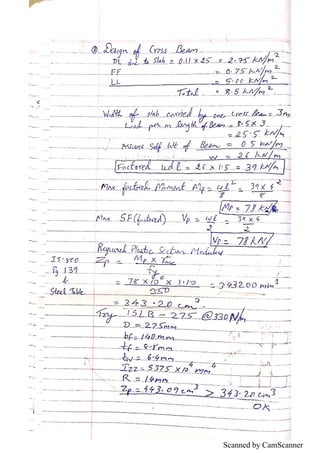 ② Design of Cross Beam
DL due to Slab = 0.11 x 25 = 2.75 kN/m²
FF = 0.75 kN/m²
LL = 5.00 kN/m²
Total = 8.5 kN/m²
Width of slab carried by one cross Beam = 3m
Load per m length of Beam = 8.5 x 3
= 25.5 kN/m
Assume Self Wt of Beam = 0.5 kN/m
w = 26 kN/m
Factored udl = 26 x 1.5 = 39 kN/m
Max factored Moment Mp = wl²/8 = 39 x 4²/8
Mp = 78 kN
Max SF (factored) Vp = wl/2 = 39 x 4/2
Vp = 78 kN
Required Plastic Section Modulus
IS-800
Pg 139
&
Steel Table
Zp = Mp x γmo / fy
= 78 x 10⁶ x 1.10 / 250 = 343200 mm³
= 343.20 cm³
Try ISLB - 275 @ 330 N/m
D = 275mm
bf = 140mm
tf = 8.8mm
tw = 6.4mm
Izz = 5375 x 10⁴ mm⁴
R = 14mm
Zp = 443.09 cm³ > 343.20 cm³
OK
Scanned by CamScanner